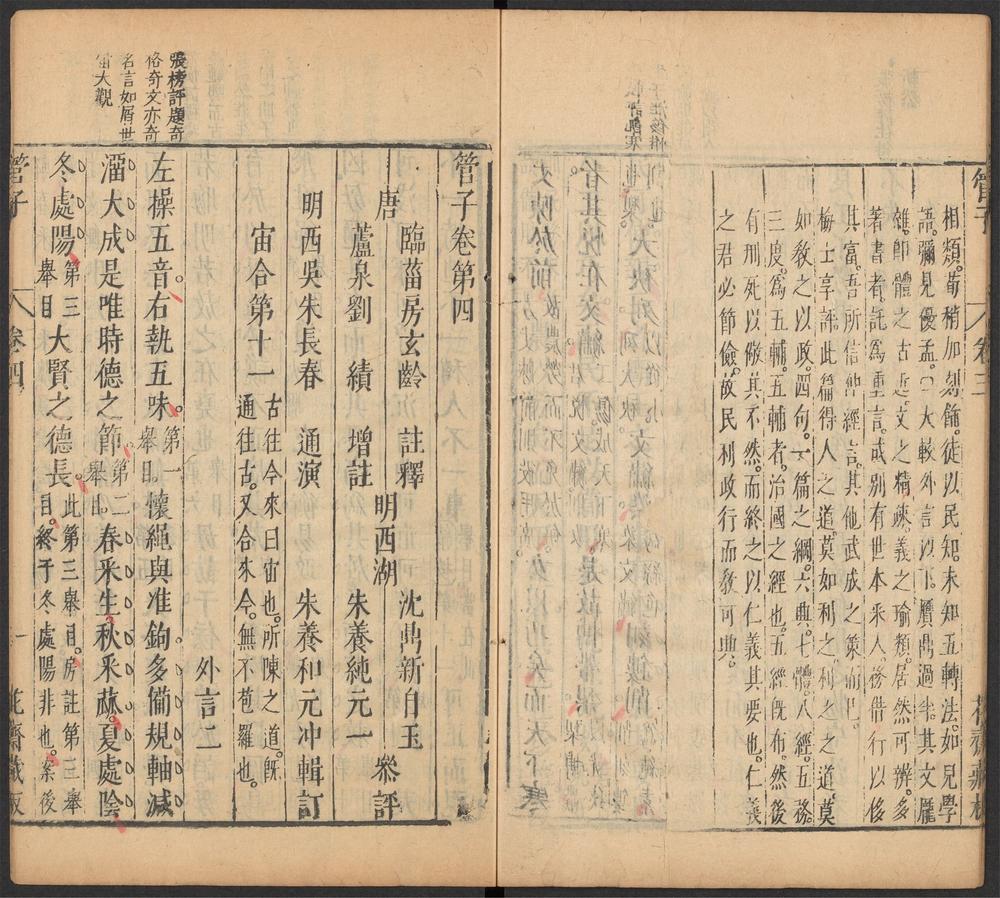 管子
卷三
相類。荀稍加刻飾。徒以民知。未知五轉法。如見學
語。彌見優孟。○大較外言以下。贗鼎過半。其文厖
雜。卽體之古近。文之精疎。義之瑜類。居然可辨。多
著書者。託爲重言。或別有世本。采人。後借行以侈
其富。吾所信仲經言。其他武成之策而已。
梅士享評此篇得人之道。莫如利之。利之之道。莫
如敎之以政。四句。一篇之綱。六典。七體。八經。五務。
三度。爲五輔。五輔者。治國之經也。五經旣布。然後
有刑死以儆其不然。而終之以仁義其要也。仁義
之君必節儉。故民利政行而敎可典。
管子卷第四
唐 臨菑房玄齡 註釋
蘆泉劉 績 增註
明西吳朱長春 通演
明西湖 沈鼎新自玉
朱養純元一 參評
朱養和元冲輯訂
宙合第十一
古往今來曰宙也。所陳之道。旣
通往古。又合來今。無不苞羅也。
外言二
張榜評題奇
俗奇文亦奇
名言如屑世
宙大觀
左操五音。右執五味。第一舉目。懷繩與准鉤多備規軸減
溜大成是唯時德之節。第二舉目。春采生。秋采蓏。夏處陰
冬處陽。第三舉目大賢之德長。此第三舉目。房註第三舉目。終于冬處陽非也。案後
管子
卷四
一
花齋藏板